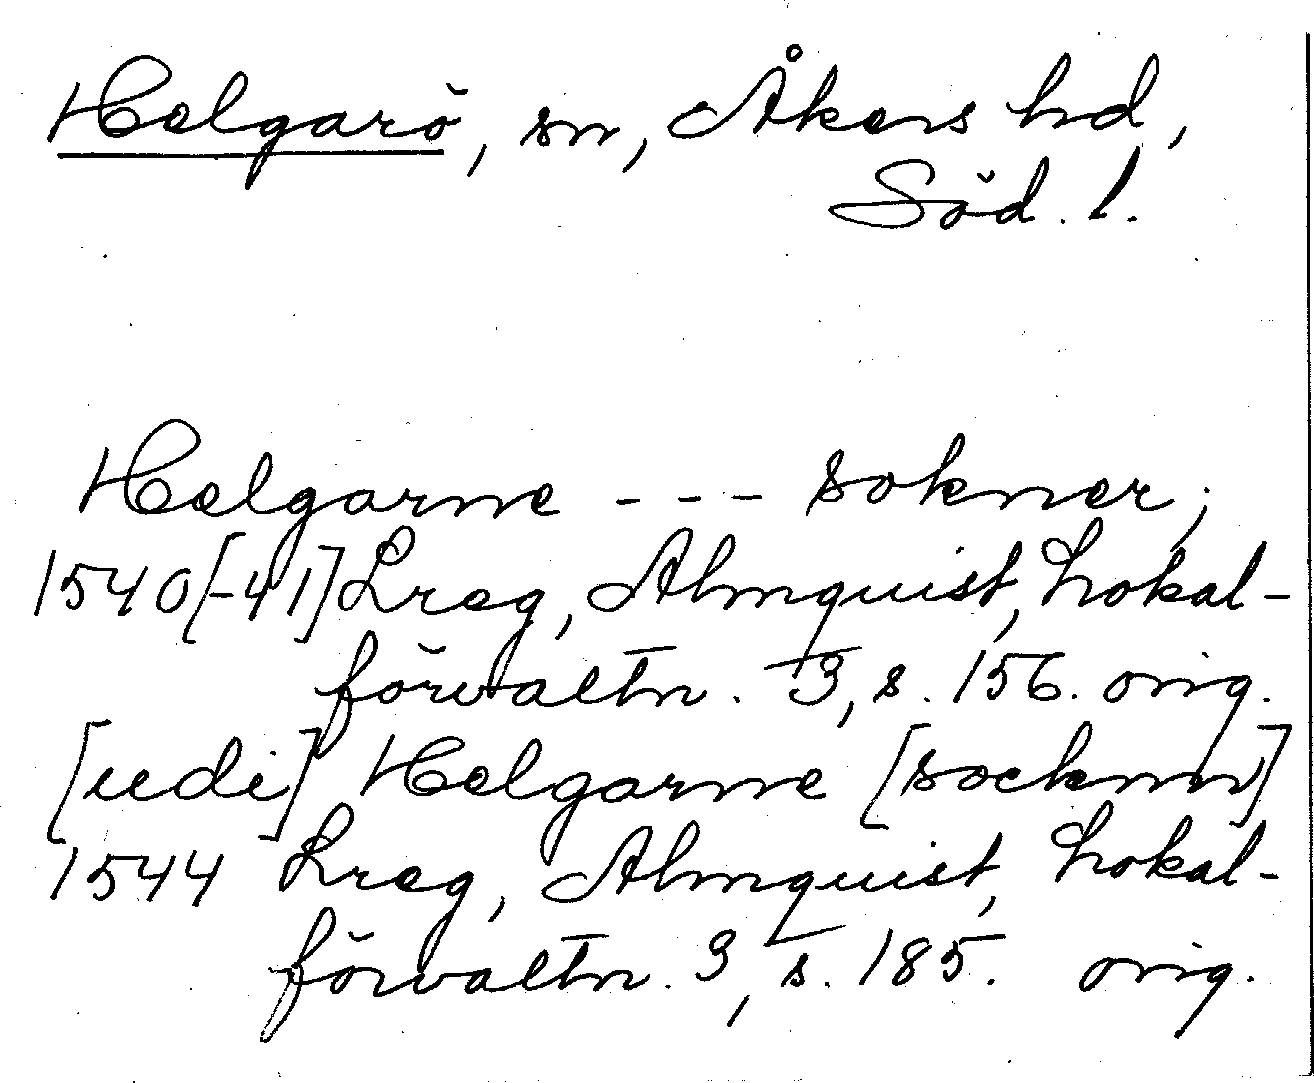 Helgarö, sn, Åkers hd,
Söd. l.
Helgarne - - - sokner;
1540[-41] Lreg, Almquist, Lokal-
förvaltn. 3, s. 156. orig.
[udi] Helgarne [socknn]
1544 Lreg, Almquist, Lokal-
förvaltn. 3, s. 185. orig.